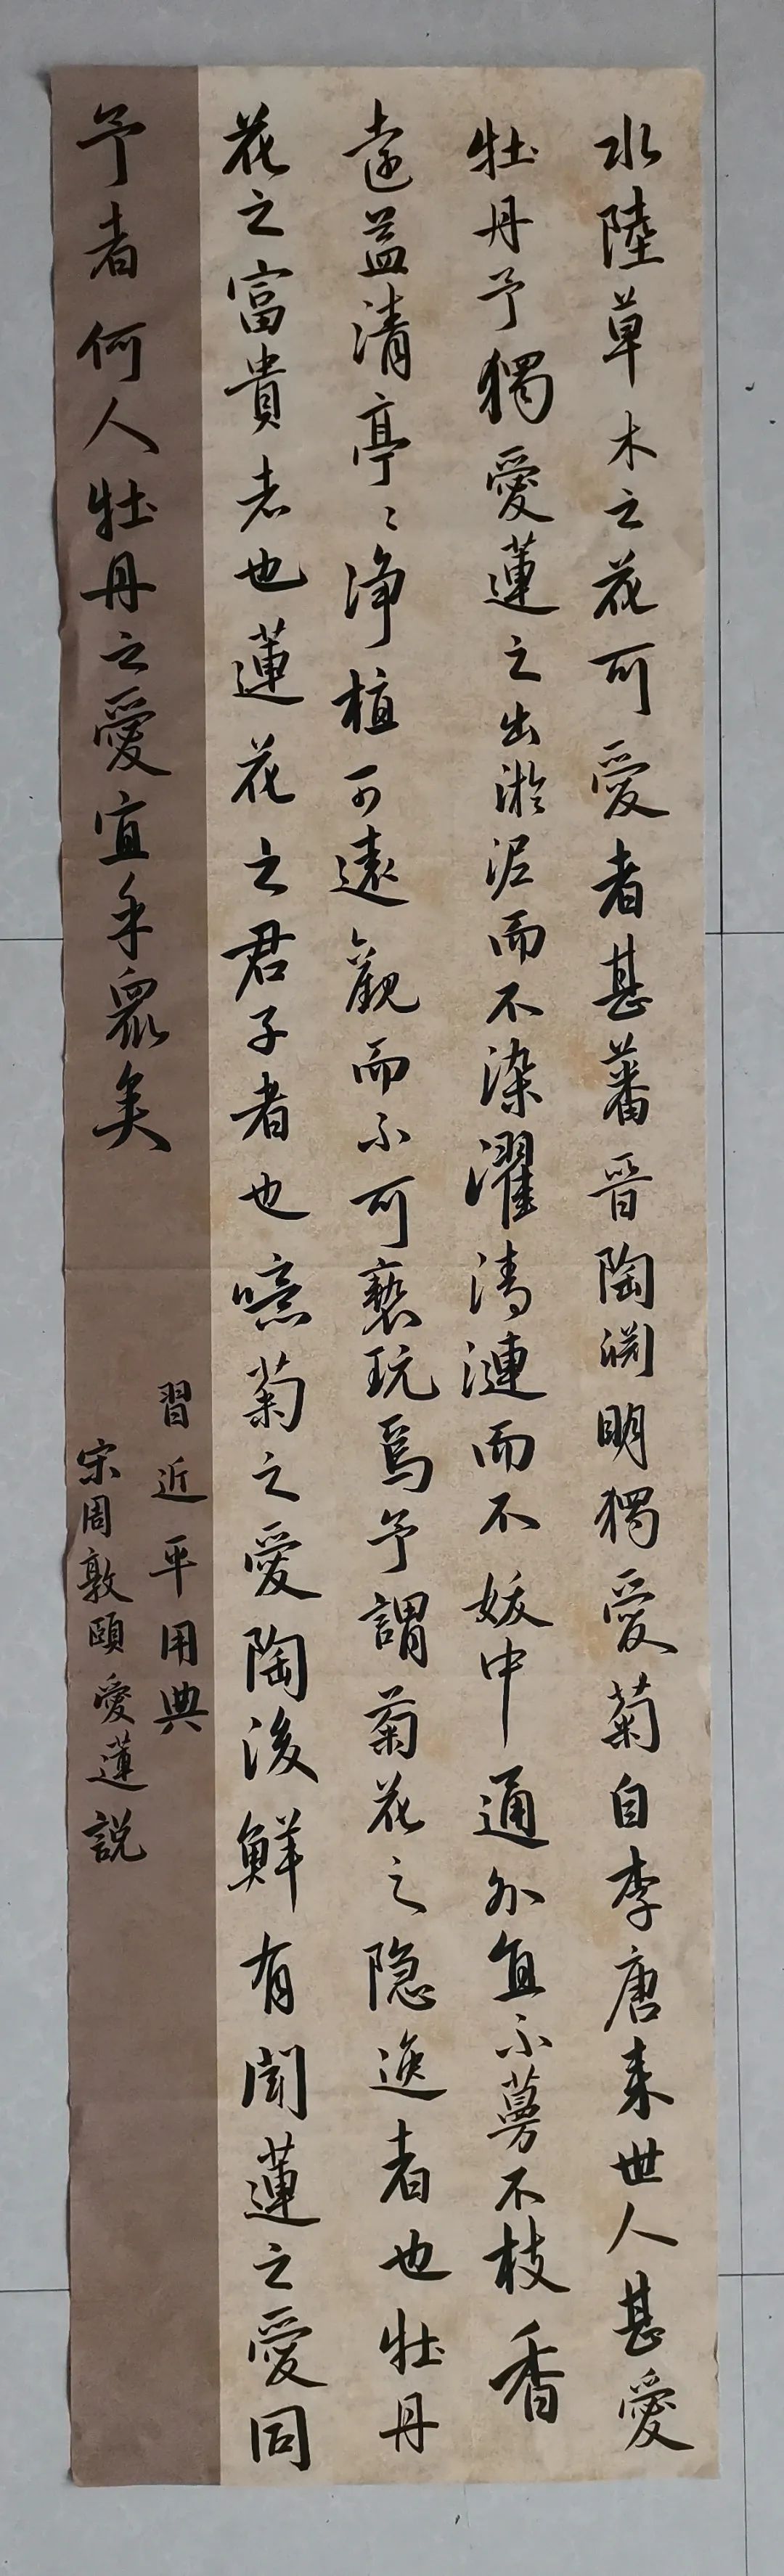 水陸草木之花可愛者甚蕃晉陶渊明獨愛菊自李唐来世人甚愛
牡丹予獨愛蓮之出淤泥而不染濯清漣而不妖中通外直不蔓不枝香
遠益清亭〻净植可遠觀而不可褻玩焉予謂菊花之隐逸者也牡丹
花之富貴者也蓮花之君子者也噫菊之愛陶後鮮有聞蓮之愛同
予者何人牡丹之愛宜乎眾矣
習近平用典
宋周敦頤愛蓮説